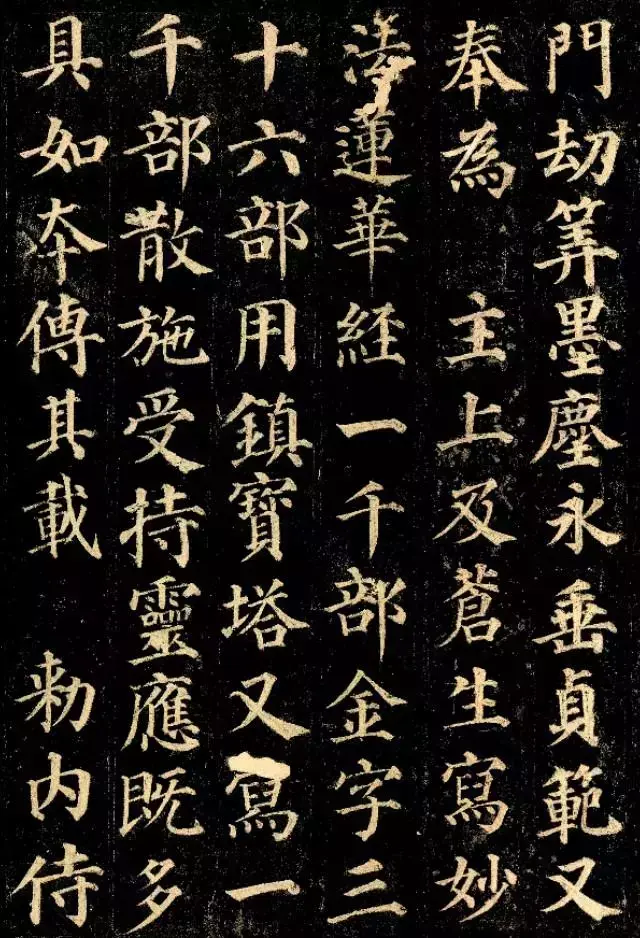 門劫筭墨塵永垂貞範又
奉為 主上及蒼生寫妙
法蓮華経一千部金字三
十六部用鎮寶塔又寫一
千部散施受持靈應既多
具如夲傳其載 勅内侍